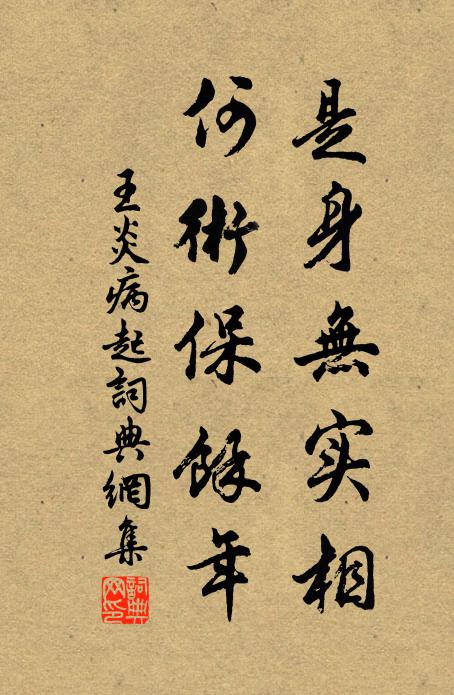 是身無实相
何術保餘年
王炎病起詞典網集
詞典网印